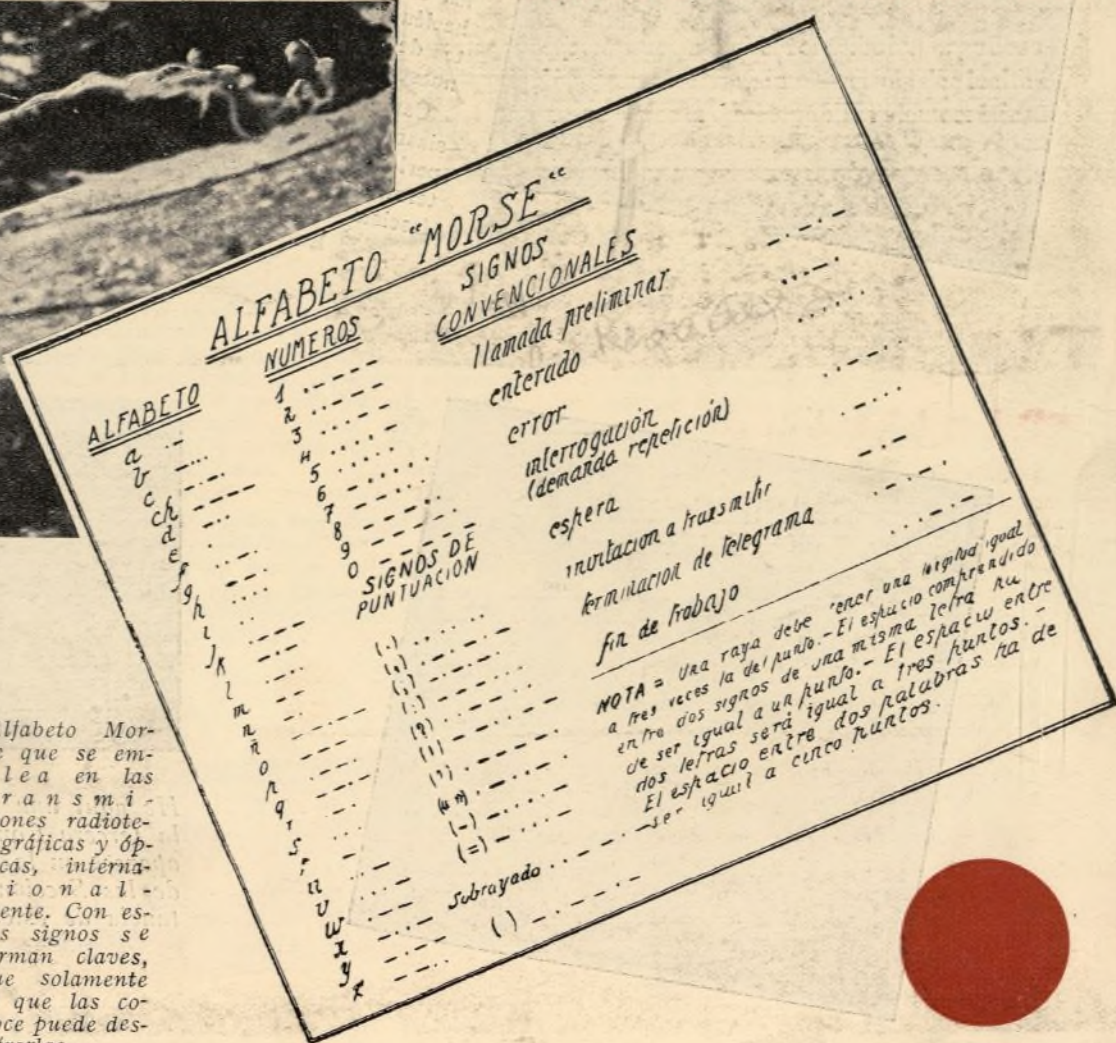 ALFABETO "MORSE"
ALFABETO
a
b
c
ch
d
e
f
g
h
i
j
k
l
m
n
ñ
o
p
q
r
s
u
v
w
x
y
z
NUMEROS
1 .----
2 ..---
3 ...--
4 ....-
5 .....
6 -....
7 --...
8 ---..
9 ----.
0 -----
SIGNOS DE
PUNTUACIÓN
(.)
(,)
(:)
(?)
(!)
(-)
(=)
Subrayado
( )
SIGNOS
CONVENCIONALES
llamada preliminar
enterado
error
interrogación
(demanda repetición)
espera
invitacion a trasmitir
terminacion de telegrama
fin de trabajo
NOTA = una raya debe tener una longitud igual
a tres veces la del punto.- El espacio comprendido
entre dos signos de una misma letra ha
de ser igual a un punto.- El espacio entre
dos letras será igual a tres puntos.-
El espacio entre dos palabras ha de
ser igual a cinco puntos.
lfabeto Mor-
e que se em-
lea en las
ransmi-
ones radiote-
gráficas y óp-
cas, interna-
ional-
ente. Con es-
s signos se
rman claves,
ue solamente
que las co-
oce puede des-